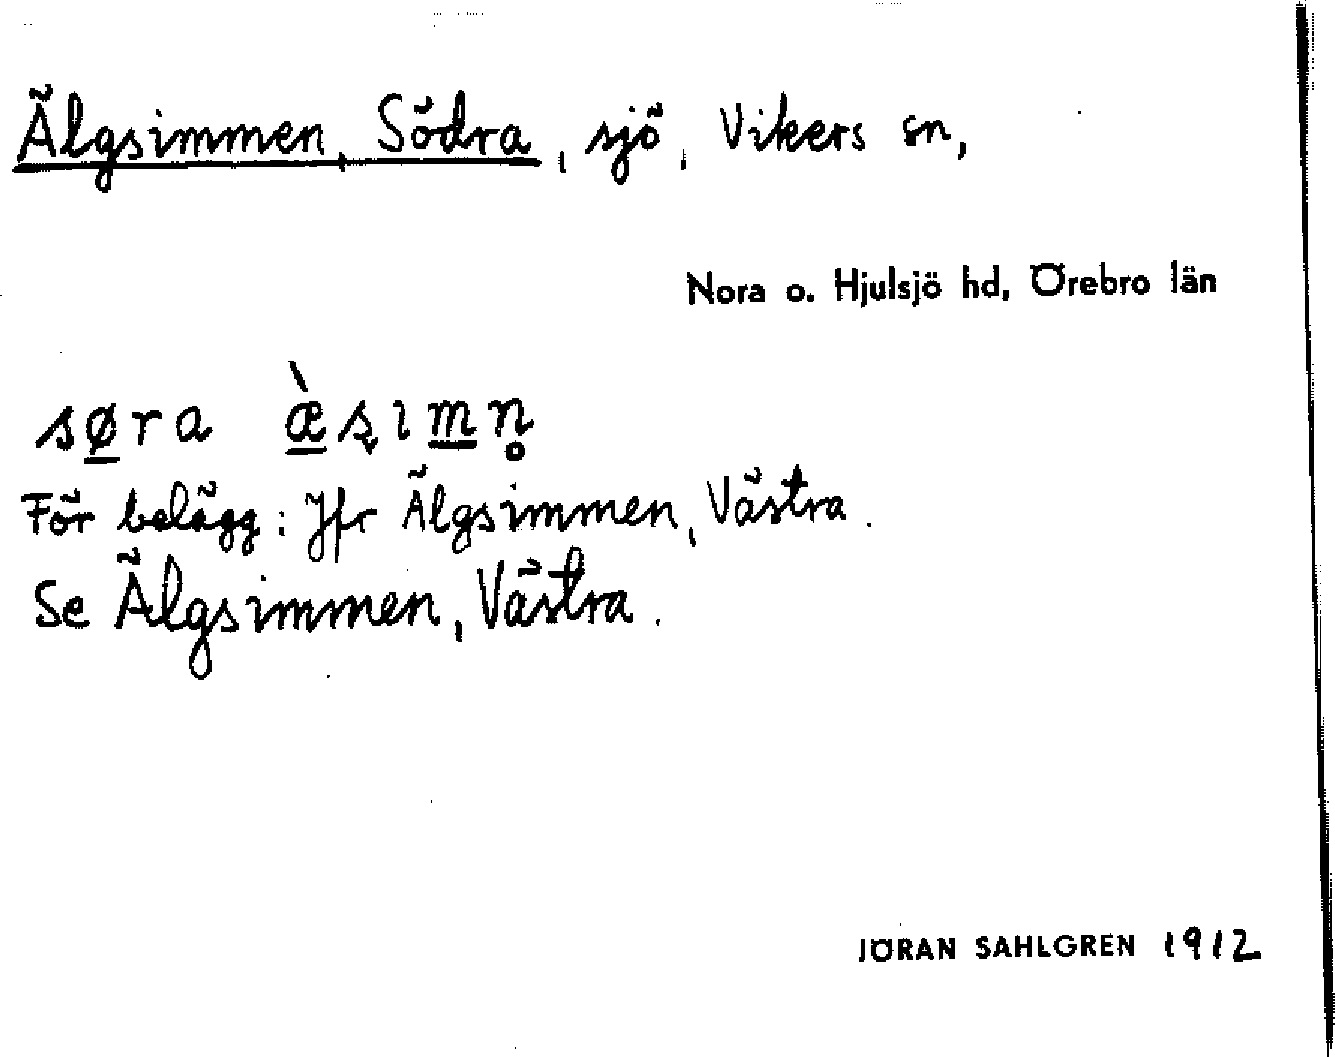 Älgsimmen, Södra, sjö, Vikers sn,
Nora o. Hjulsjö hd, Örebro län
sø̲ra æ̲̀ʂım̲n̥
För belägg: Jfr Älgsimmen, Västra.
Se Älgsimmen, Västra.
JÖRAN SAHLGREN 1912